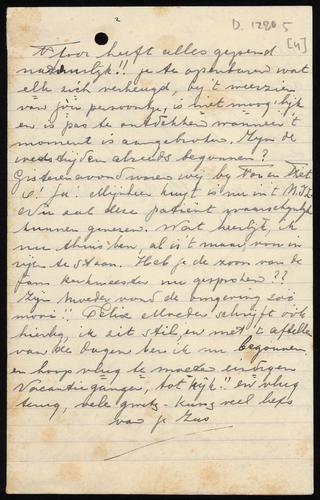 2
D. 12805
[4]
heeft alles gezond
natuurlijk!! je te openbaren wat
elk zich verheugd, bij 't weerzien
van jou persoontje, is niet mogelijk
en is pas te ontdekken wanneer 't
moment is aangebroken. Zijn de
wedstrijden alreeds begonnen?
Gisterenavond waren wij bij en
O! Ja! Mijnheer is nu in 't
Nu zal deze patient waarschijnlijk
kunnen genezen. Wat heerlijk, ik
nu thuis ben, al is 't maar om in
rijen te staan. Heb je de zoon van de
fam. Kerkmeester nu gesproken??
Zijn Moeder vond de omgeving zóó
mooi!! Moeder schrijft óók
hierbij, ik zit stil, en met 't aftellen
van de dagen ben ik nu begonnen.
en hoop vlug te moeten eindigen
Vacantiegangers, tot kijk!! en vlug
terug, vele groetjes - kusjes veel liefs
van je Zus